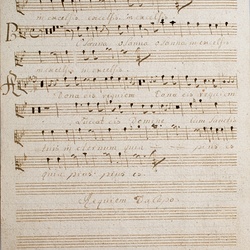 in excelsis excelsis in excelsis
Osanna osanna osanna in excelsis
in excelsis
Dona eis requiem Dona eis requiem
Luceat eis Domine cum sanctis
tuis in eternum quia pius es
quia pius pius es
Requiem